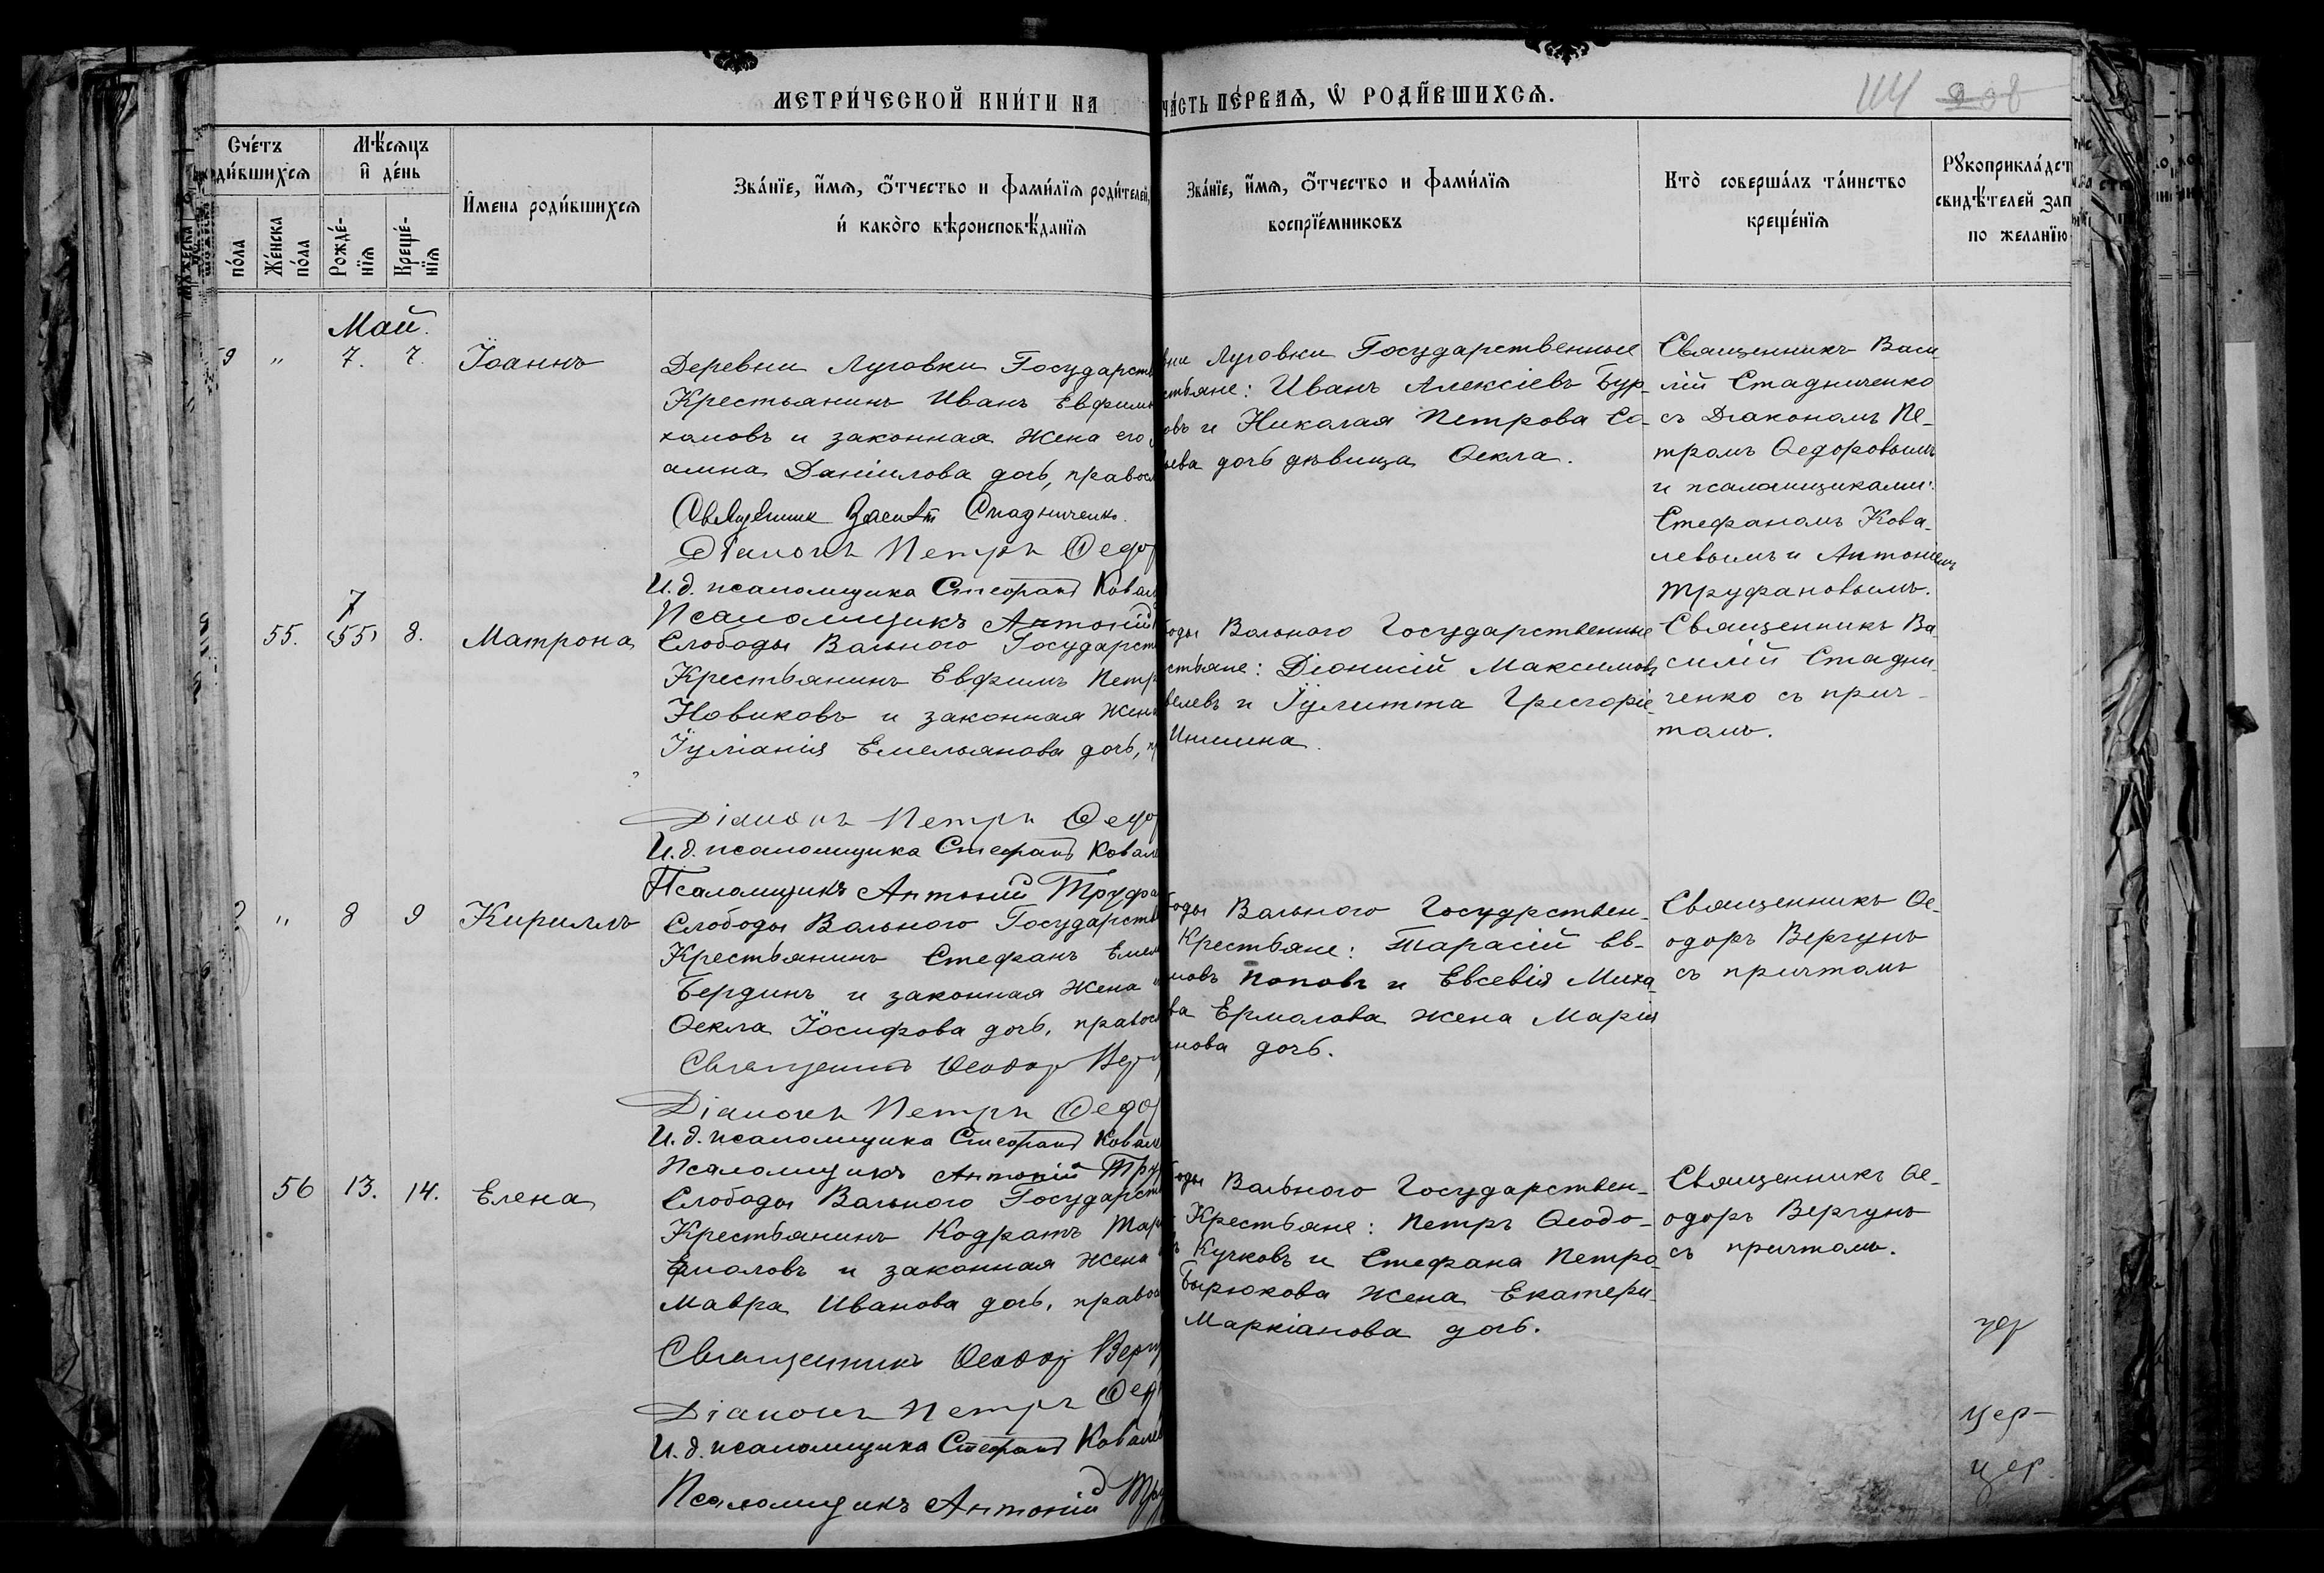 МЕТРИ́ЧЕСКОЙ КНИ́ГИ НА
ЧА́СТЬ ПЕ́РВАЯ, Ѡ҆ РОДИ́ВШИХСѦ.
114 208
Сче́тъ роди́вшихсѧ
Мѣ́сѧцъ и҆ де́нь
И҆мена роди́вшихсѧ
Зва́нїе, и҆́мѧ, ѻ҆́тчество и фами́лїѧ роди́телей,
и҆ како́го вѣроисповѣ́данїѧ
Зва́нїе, и҆́мѧ, ѻ҆́тчество и фами́лїѧ
воспрїе́мниковъ
Кто̀ соверша́лъ та́инство
креще́нїѧ
Рꙋкоприкла́дст
свидѣ́телей зап
по желанїю
по́ла
Же́нска по́ла
Рожде́нїѧ
Креще́нїѧ
Май.
9 " 7. 7. Іоаннъ
Деревни Луговки Государств
Крестьянинъ Иванъ Евфим
хамовъ и законная жена его
амна Даніилова дочь, правос
Священникъ Стадниченко.
Діаконъ Петръ Ѳедо
И. д. псаломщика Стефанъ Ковал
Псаломщикъ Антоній
вни Луговки Государственные
стьяне: Иванъ Алексіевъ Бур-
овъ и Николая Петрова Со-
ева дочь дѣвица Ѳекла.
Священникъ Васи-
лій Стадниченко
съ Діакономъ Пе-
тромъ Ѳедоровымъ
и псаломщиками:
Стефаномъ Кова-
левымъ и Антоніемъ
Труфановымъ.
55. 7 (55) 8. Матрона
Слободы Вольного Государст
Крестьянинъ Евфимъ Петр
Новиковъ и законная жен
Іуліанія Емельянова дочь, п
Діаконъ Петръ Ѳедо
И. д. псаломщика Стефанъ Ковале
Псаломщикъ Антоній Труфа
оды Вольного Государственные
стьяне: Діонисій Максимовъ
велевъ и Іулитта Григоріе-
Иншина.
Священникъ Ва-
силій Стадни-
ченко съ прич-
томъ.
" 8 9 Кириллъ
Слободы Вольного Государств
Крестьянинъ Стефанъ Емел
Бердинъ и законная жена
Ѳекла Іосифова дочь, правос
Священникъ Ѳеодоръ Вер
Діаконъ Петръ Ѳедо
И. д. псаломщика Стефанъ Ковале
Псаломщикъ Антоній Тру
оды Вольного Госудрствен-
Крестьяне: Тарасій Ев-
мовъ Поповъ и Евсевія Миха-
ва Ермолова жена Марія
нова дочь.
Священникъ Ѳе-
одоръ Вергунъ
съ причтомъ
56 13. 14. Елена
Слободы Вольного Государст
Крестьянинъ Кодратъ Тар
Ермоловъ и законная жена
Мавра Иванова дочь, правос
Священникъ Ѳеодоръ Верг
Діаконъ Петръ Ѳед
И. д. псаломщика Стефанъ Ковале
Псаломщикъ Антоній Тру
оды Вольного Государствен-
Крестьяне: Петръ Ѳеодо-
ъ Кучковъ и Стефана Петро-
Бирюкова жена Екатери-
Маркіанова дочь.
Священникъ Ѳе-
одоръ Вергунъ
съ причтомъ.
цер
цер-
цер